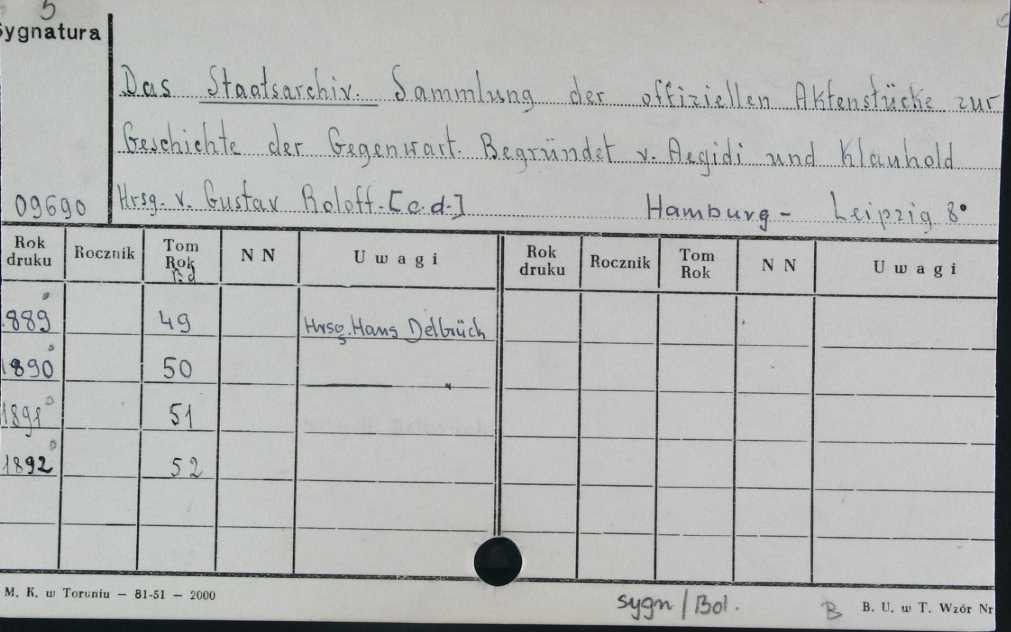 5
Sygnatura
Das Staatsarchiv. Sammlung der offiziellen Aktenstücke zur
Geschichte der Gegenwart. Begründet v. Aegidi und Klauhold
09690 Hrsg. v. Gustav Roloff. [c.d.] Hamburg - Leipzig 8°
Rok druku Rocznik Tom Rok NN Uwagi Rok druku Rocznik Tom Rok NN Uwagi
889 49 Hrsg. Hans Delbrück
1890 50 "
1891 51
1892 52
M. K. w Toruniu – 81-51 – 2000
sygn / Bol. B B. U. w T. Wzór Nr